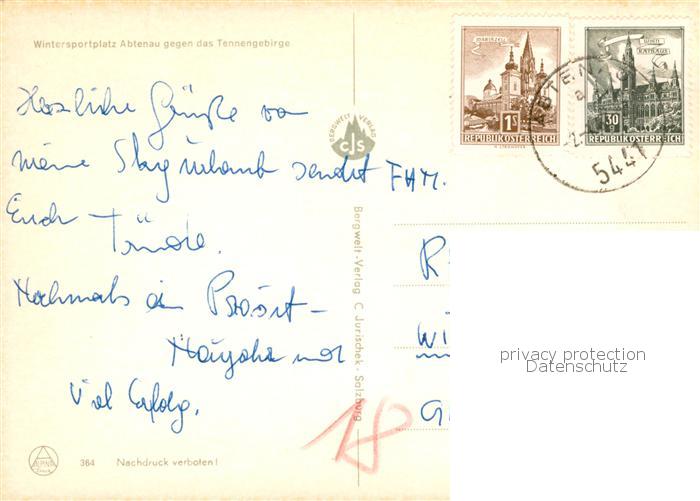 Wintersportplatz Abtenau gegen das Tennengebirge
Herzliche Grüße von
meine Skyurlaub sendet
Euch Trude.
Nochmals ein Prosit -
Neujahr und
Viel Erfolg.
364 Nachdruck verboten!
BERGWELT VERLAG
CJS
Bergwelt-Verlag C. Jurischek - Salzburg
MARIAZELL
1S
REPUBLIK ÖSTERREICH
WIEN
RATHAUS
30
REPUBLIK ÖSTERREICH
ABTENAU
5441
FAM.
18
privacy protection
Datenschutz